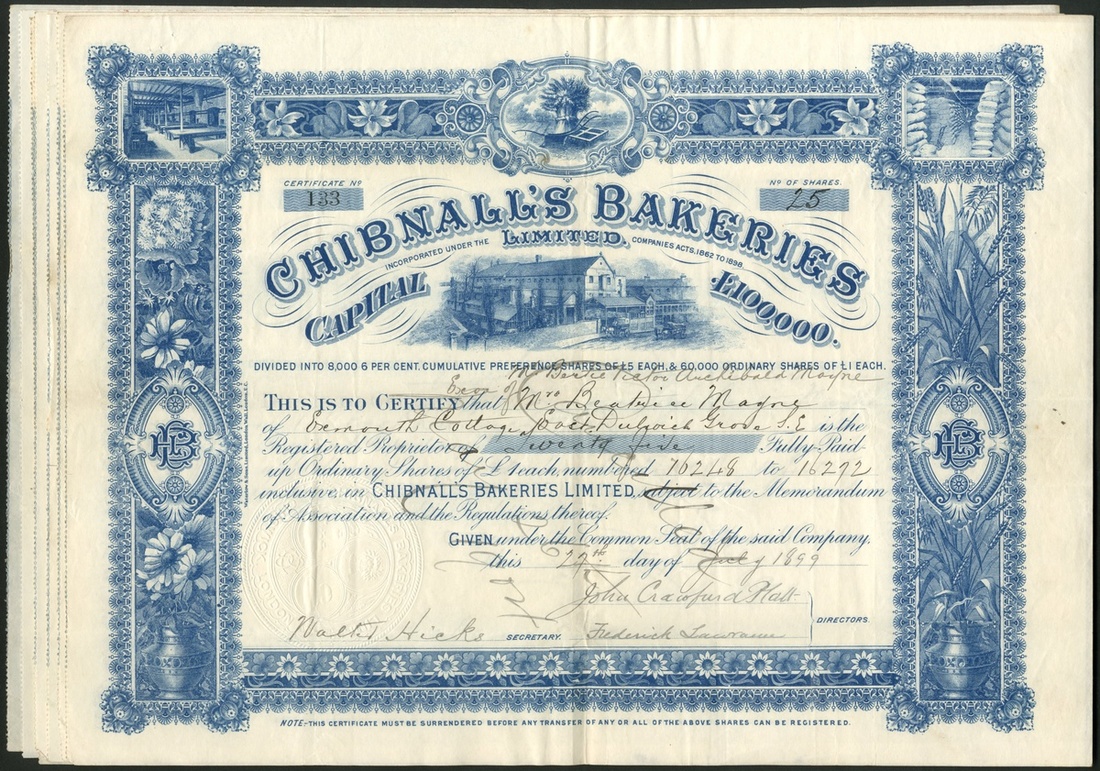 CERTIFICATE Nº
133
Nº OF SHARES.
25
CHIBNALL'S BAKERIES
LIMITED.
INCORPORATED UNDER THE COMPANIES ACTS, 1862 TO 1898.
CAPITAL £100,000.
DIVIDED INTO 8,000 6 PER CENT. CUMULATIVE PREFERENCE SHARES OF £5 EACH, & 60,000 ORDINARY SHARES OF £1 EACH.
Exor of Mr Bertie Victor Archibald Mayne
THIS IS TO CERTIFY that Mrs Beatrice Mayne
of Exmouth Cottage, East Dulwich Grove S.E is the
Registered Proprietor of Twenty five Fully-Paid
up Ordinary Shares of £1 each, numbered 16248 to 16272
inclusive, in CHIBNALL'S BAKERIES LIMITED, subject to the Memorandum
of Association and the Regulations thereof.
GIVEN under the Common Seal of the said Company,
this 22th day of July 1899
John Crawfurd Platt
Walt. T. Hicks SECRETARY. Frederick Lawrance DIRECTORS.
NOTE:-THIS CERTIFICATE MUST BE SURRENDERED BEFORE ANY TRANSFER OF ANY OR ALL OF THE ABOVE SHARES CAN BE REGISTERED.